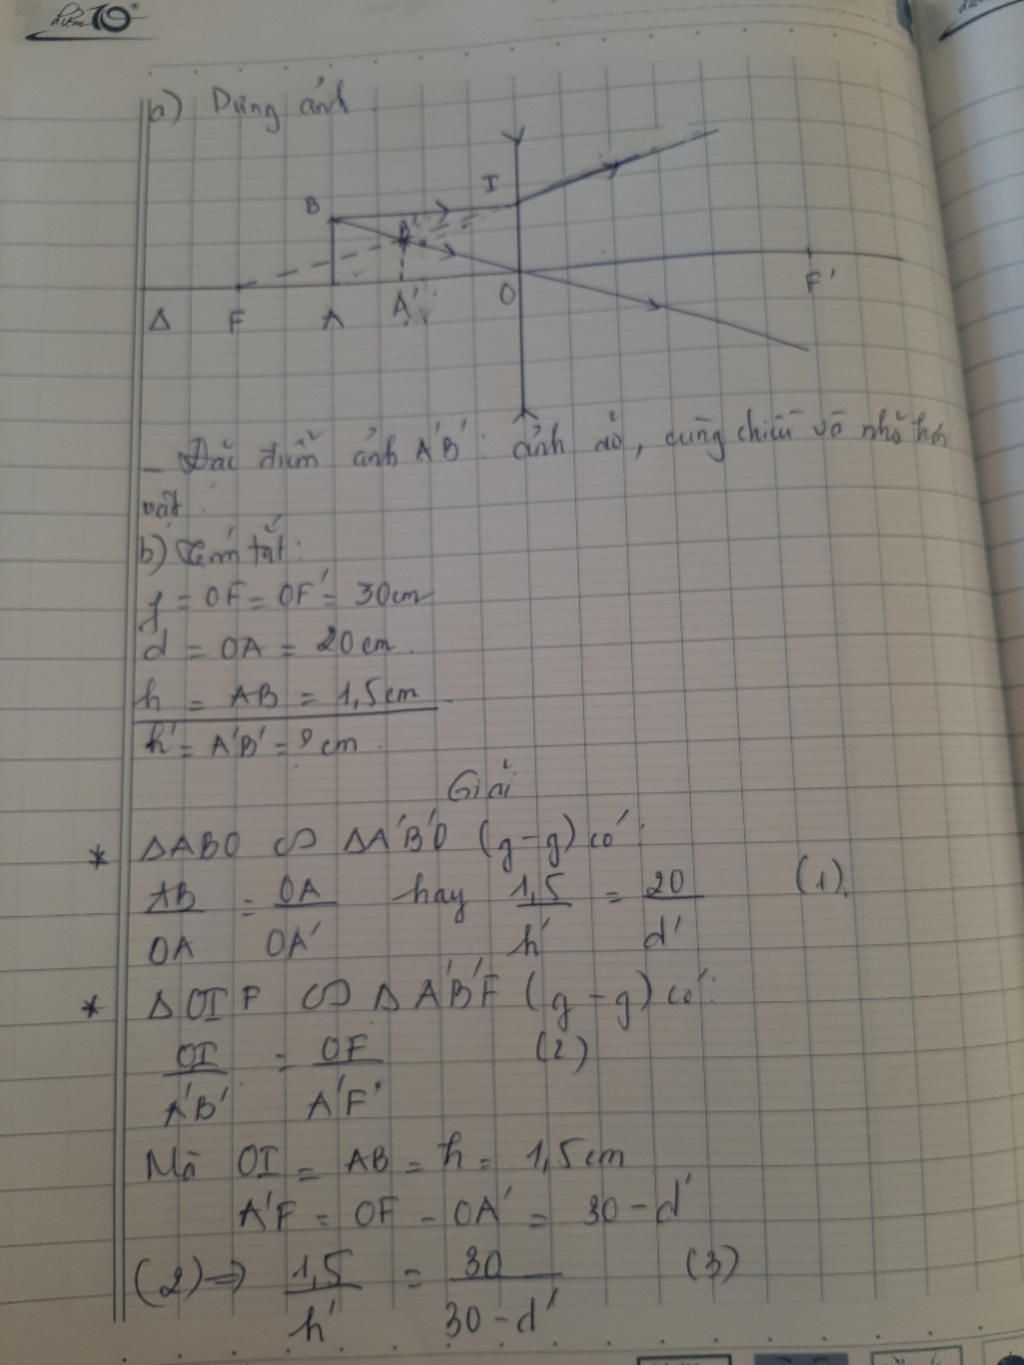 Điểm 10
a) Dựng ảnh
I
B
B'
Δ F A A' O F'
- Đặc điểm ảnh A'B': ảnh ảo, cùng chiều và nhỏ hơn
vật.
b) Tóm tắt:
f = OF = OF' = 30cm
d = OA = 20cm.
h = AB = 1,5cm
h' = A'B' = ? cm.
Giải
* ΔABO ∽ ΔA'B'O (g-g) có:
AB/OA = OA/OA' hay 1,5/h' = 20/d' (1).
* ΔOIF ∽ ΔA'B'F (g-g) có:
OI/A'B' = OF/A'F' (2)
Mà OI = AB = h = 1,5cm
A'F = OF - OA' = 30 - d'
(2) ⇒ 1,5/h' = 30/30-d' (3)